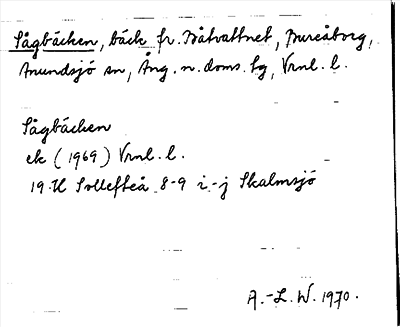 Sågbäcken, bäck fr. Båtvattnet, Bureåborg,
Anundsjö sn, Ång. n. doms. lg, Vrnl. l.
Sågbäcken
ek (1969) Vrnl. l.
19 H Sollefteå 8-9 i-j Skalmsjö
A.-L. W. 1970.